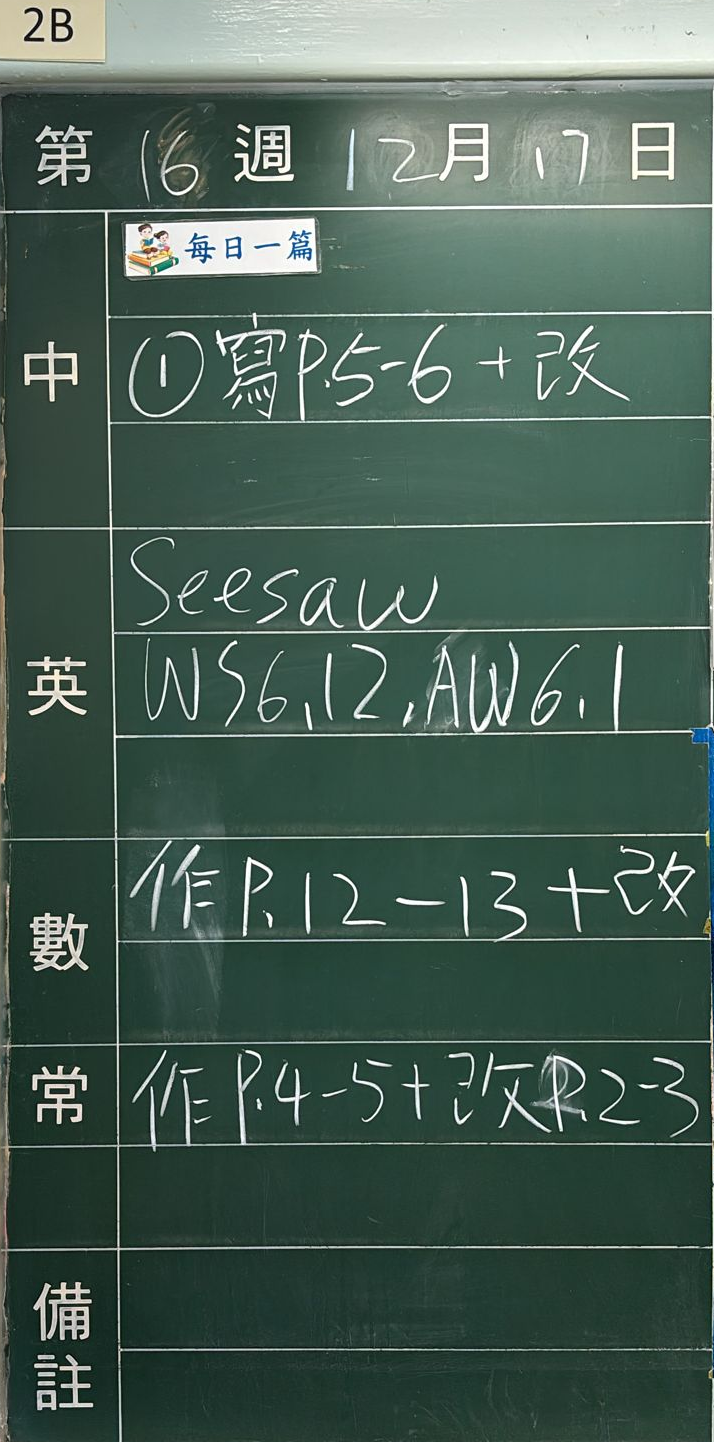 2B
第 16 週 12月 17 日
每日一篇
中
①寫P.5-6 + 改
英
Seesaw
WS6.12, AW6.1
數
作P.12-13+改
常
作P.4-5+改P.2-3
備註